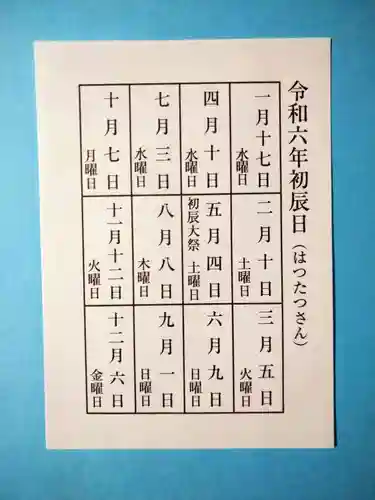 令和六年初辰日（はつたつさん）
一月十七日
水曜日
二月十日
土曜日
三月五日
火曜日
四月十日
水曜日
五月四日
初辰大祭 土曜日
六月九日
日曜日
七月三日
水曜日
八月八日
木曜日
九月一日
日曜日
十月七日
月曜日
十一月十二日
火曜日
十二月六日
金曜日